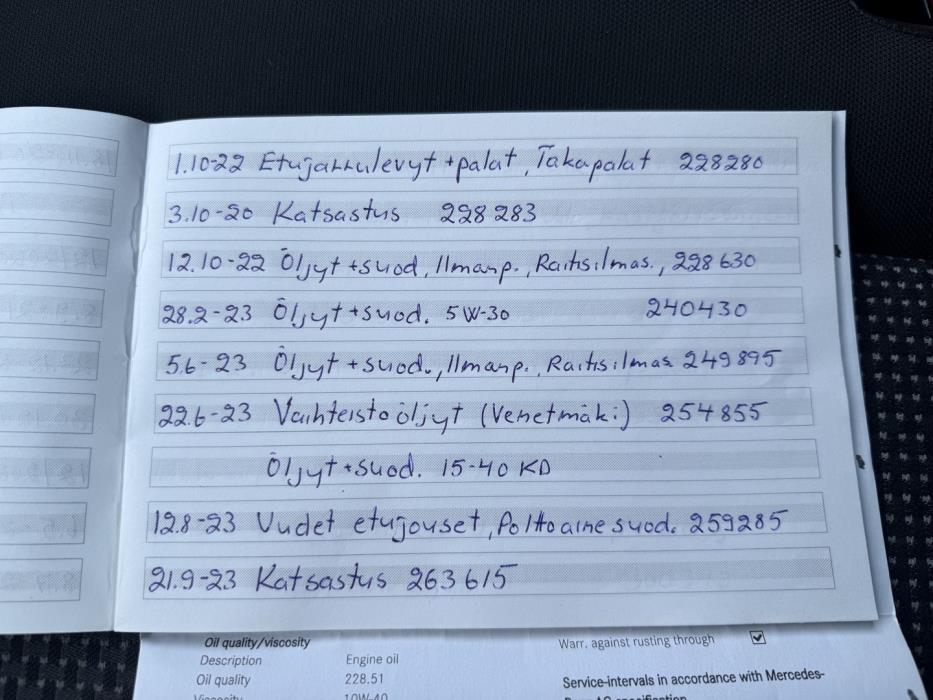 1.10-22 Etujarrulevyt + palat, Takapalat 228280
3.10-20 Katsastus 228 283
12.10-22 Öljyt + suod, Ilmanp., Raitisilmas., 228 630
28.2-23 Öljyt + suod. 5W-30 240430
5.6-23 Öljyt + suod., Ilmanp., Raitisilmas 249895
22.6-23 Vaihteistoöljyt (Venetmäki) 254855
Öljyt + suod. 15-40 KD
12.8-23 Uudet etujouset, Polttoainesuod. 259285
21.9-23 Katsastus 263615
Oil quality/viscosity
Warr. against rusting through
Description Engine oil
Oil quality 228.51
Service-intervals in accordance with Mercedes-
Viscosity 10W-40
AG specification